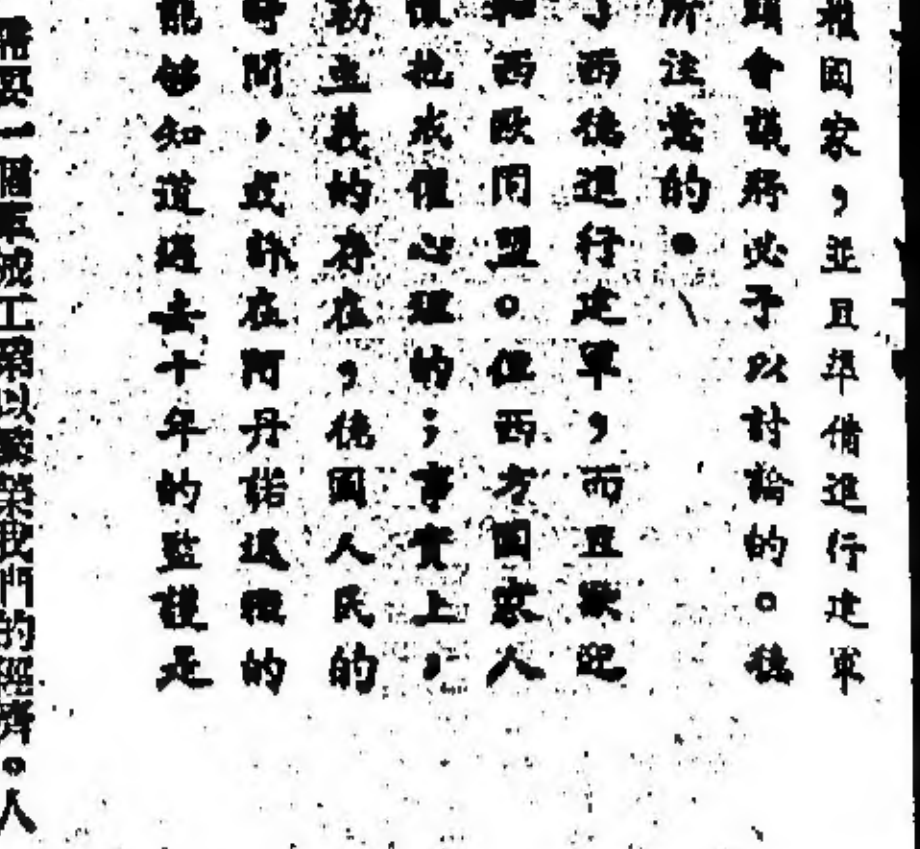 權國家，並且準備進行建軍
頭會議將必予以討論的。德
所注意的。
了西德進行建軍，而且歡迎
和西歐同盟。但西方國家人
懷抱戒懼心理的；事實上，
勒主義的存在，德國人民的
時間，或許在阿丹諾退穩的
能够知道過去十年的監護是
需要一個工業以繁榮我們的經濟。人